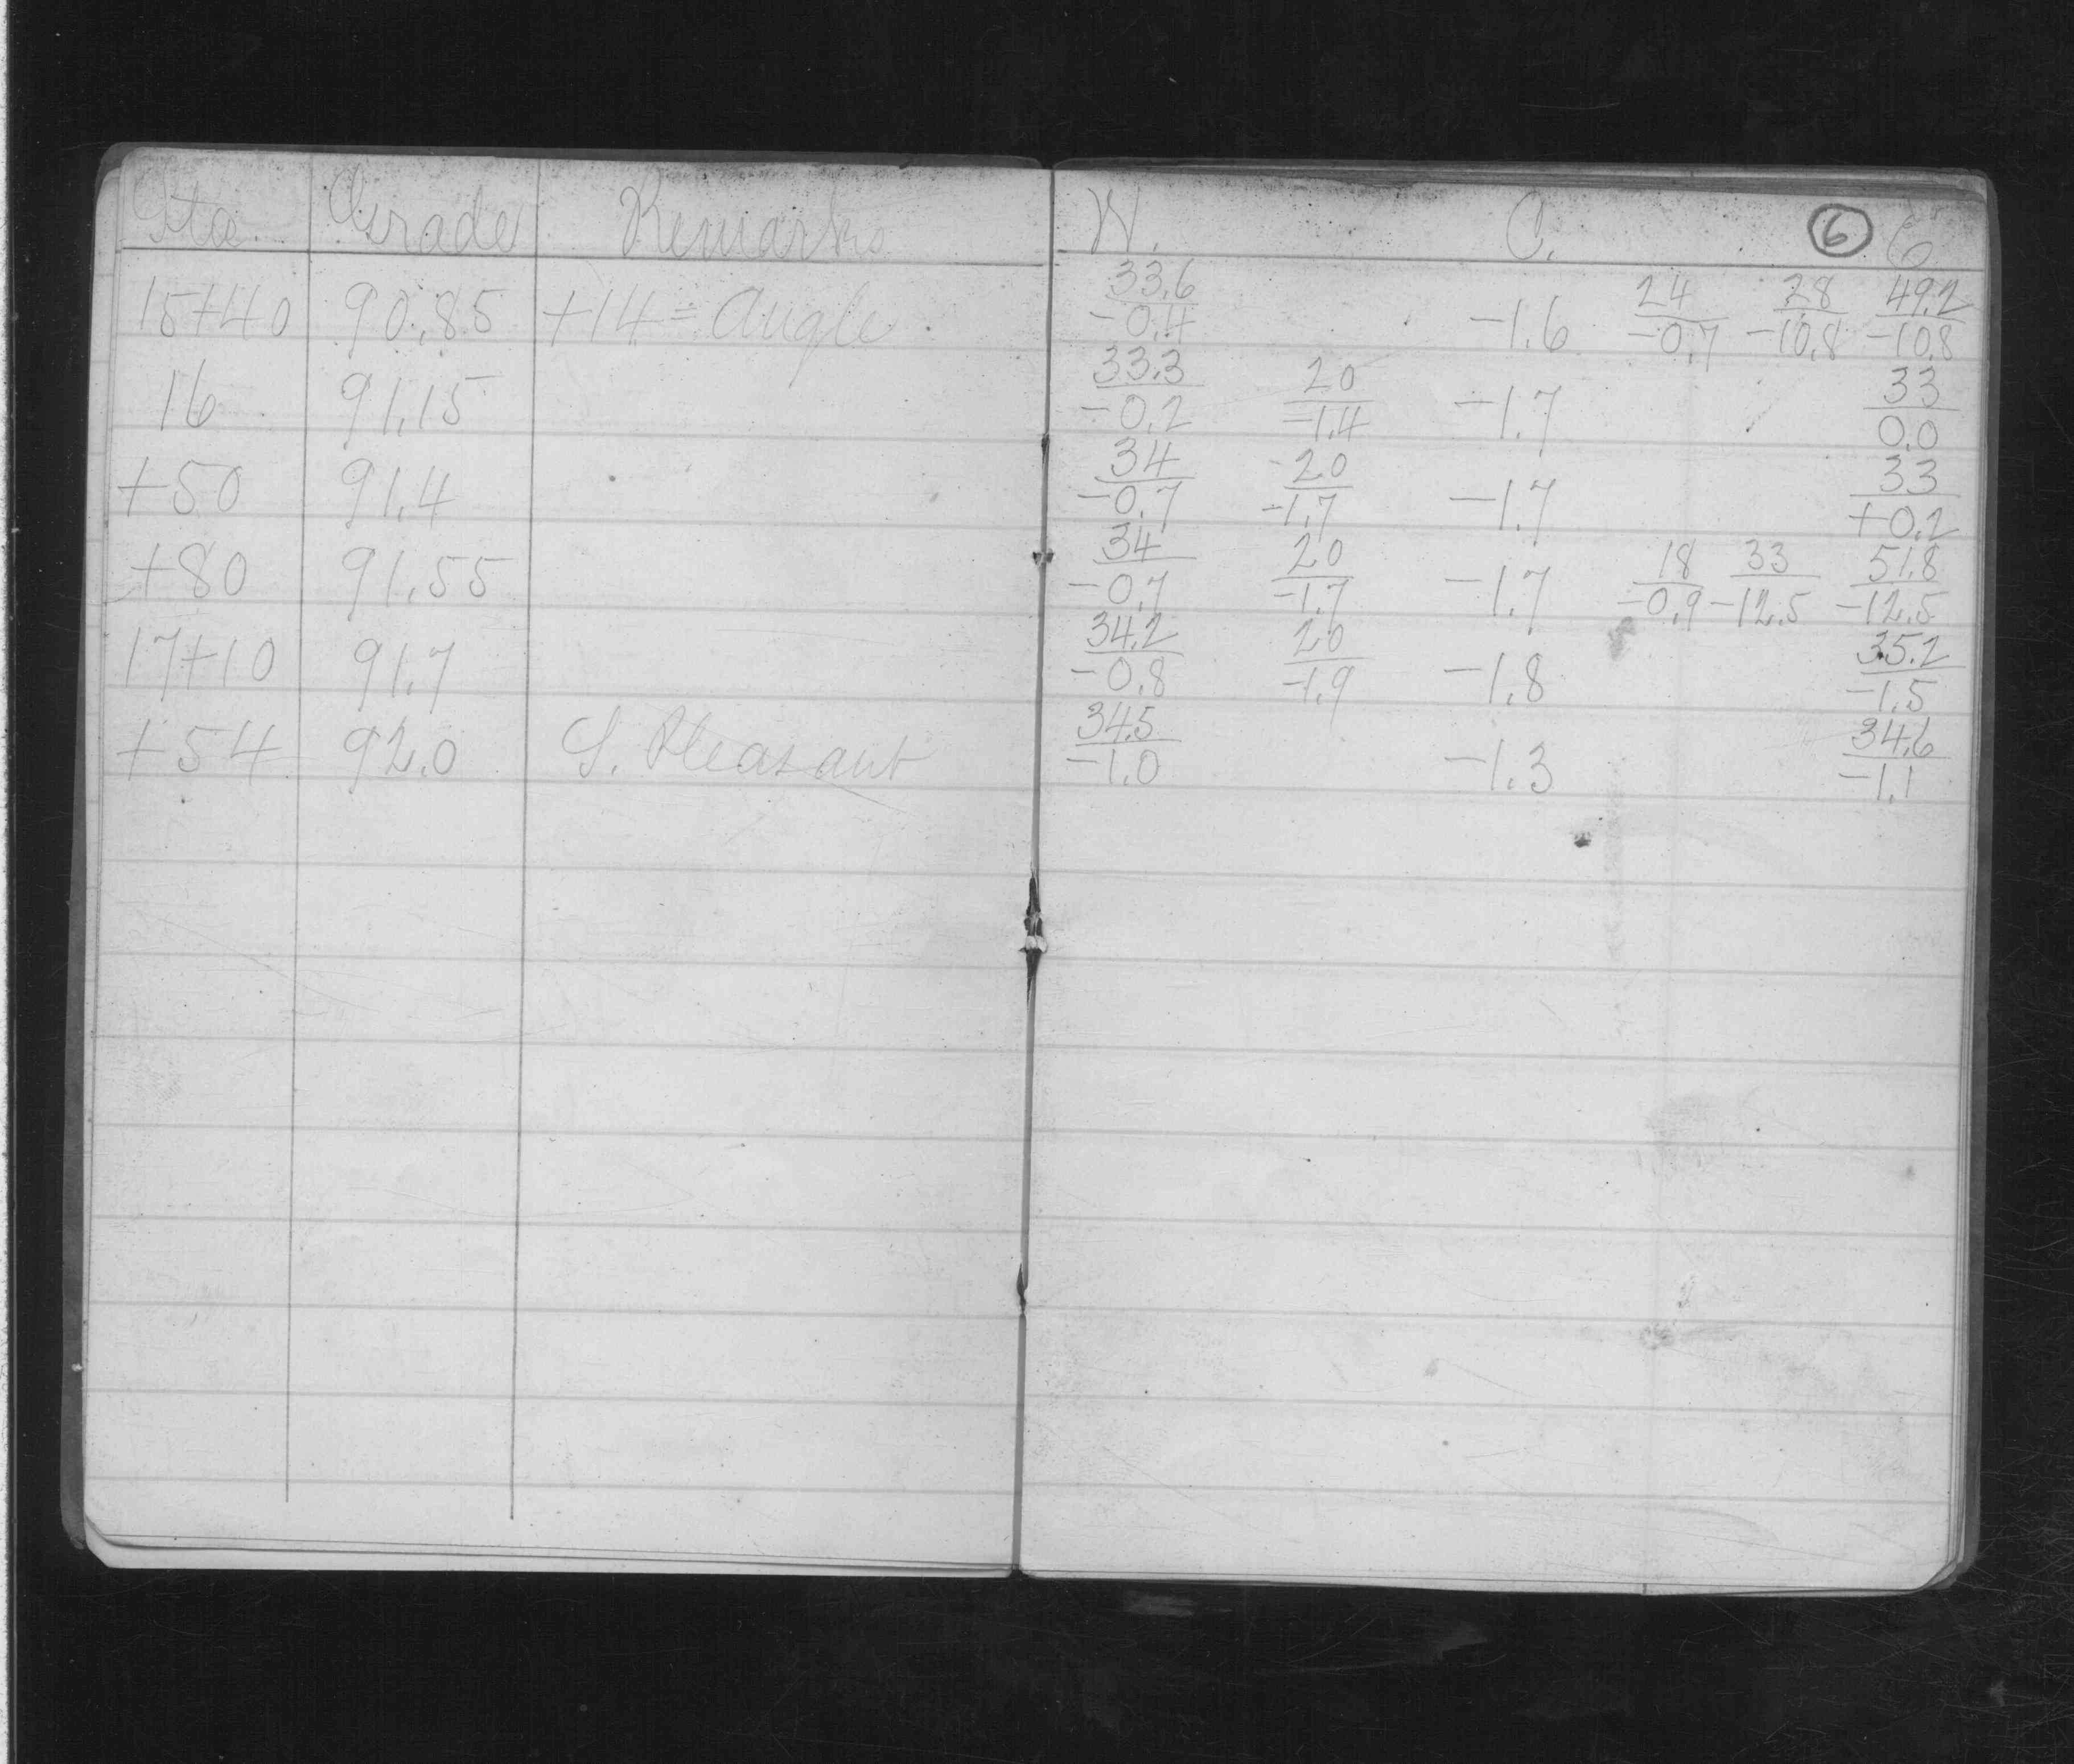 Sta. Grade Remarks W. C. 6 E
15+40 90.85 +14 = Angle 33.6/-0.4 -1.6 24/-0.7 28/-10.8 49.2/-10.8
16 91.15 33.3/-0.2 20/-1.4 -1.7 33/0.0
+50 91.4 34/-0.7 20/-1.7 -1.7 33/+0.2
+80 91.55 34/-0.7 20/-1.7 -1.7 18/-0.9 33/-12.5 51.8/-12.5
17+10 91.7 34.2/-0.8 20/-1.9 -1.8 35.2/-1.5
+54 92.0 S. Pleasant 34.5/-1.0 -1.3 34.6/-1.1